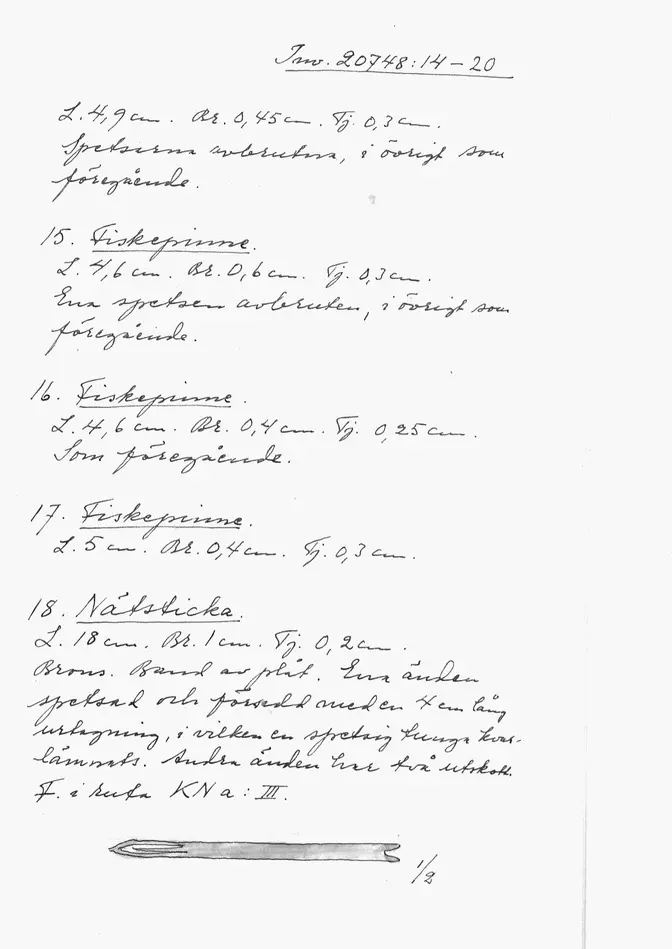 Inv. 20748:14-20
L. 4,9 cm. Br. 0,45 cm. Tj. 0,3 cm.
Spetsarna avbrutna, i övrigt som
föregående.
15. Fiskepinne.
L. 4,6 cm. Br. 0,6 cm. Tj. 0,3 cm.
Ena spetsen avbruten, i övrigt som
föregående.
16. Fiskepinne.
L. 4,6 cm. Br. 0,4 cm. Tj. 0,25 cm.
Som föregående.
17. Fiskepinne.
L. 5 cm. Br. 0,4 cm. Tj. 0,3 cm.
18. Nätsticka.
L. 18 cm. Br. 1 cm. Tj. 0,2 cm.
Brons. Band av plåt. Ena änden
spetsad och försedd med en 4 cm lång
urtagning, i vilken en spetsig tunga kvar-
lämnats. Andra änden har två utskott.
F. i ruta KNa: III.
1/2